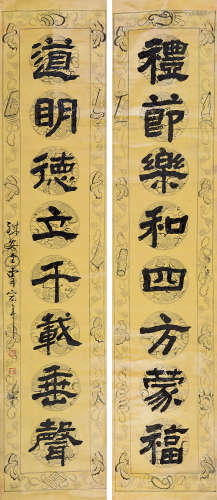 禮節樂和四方蒙福
道明德立千載垂聲